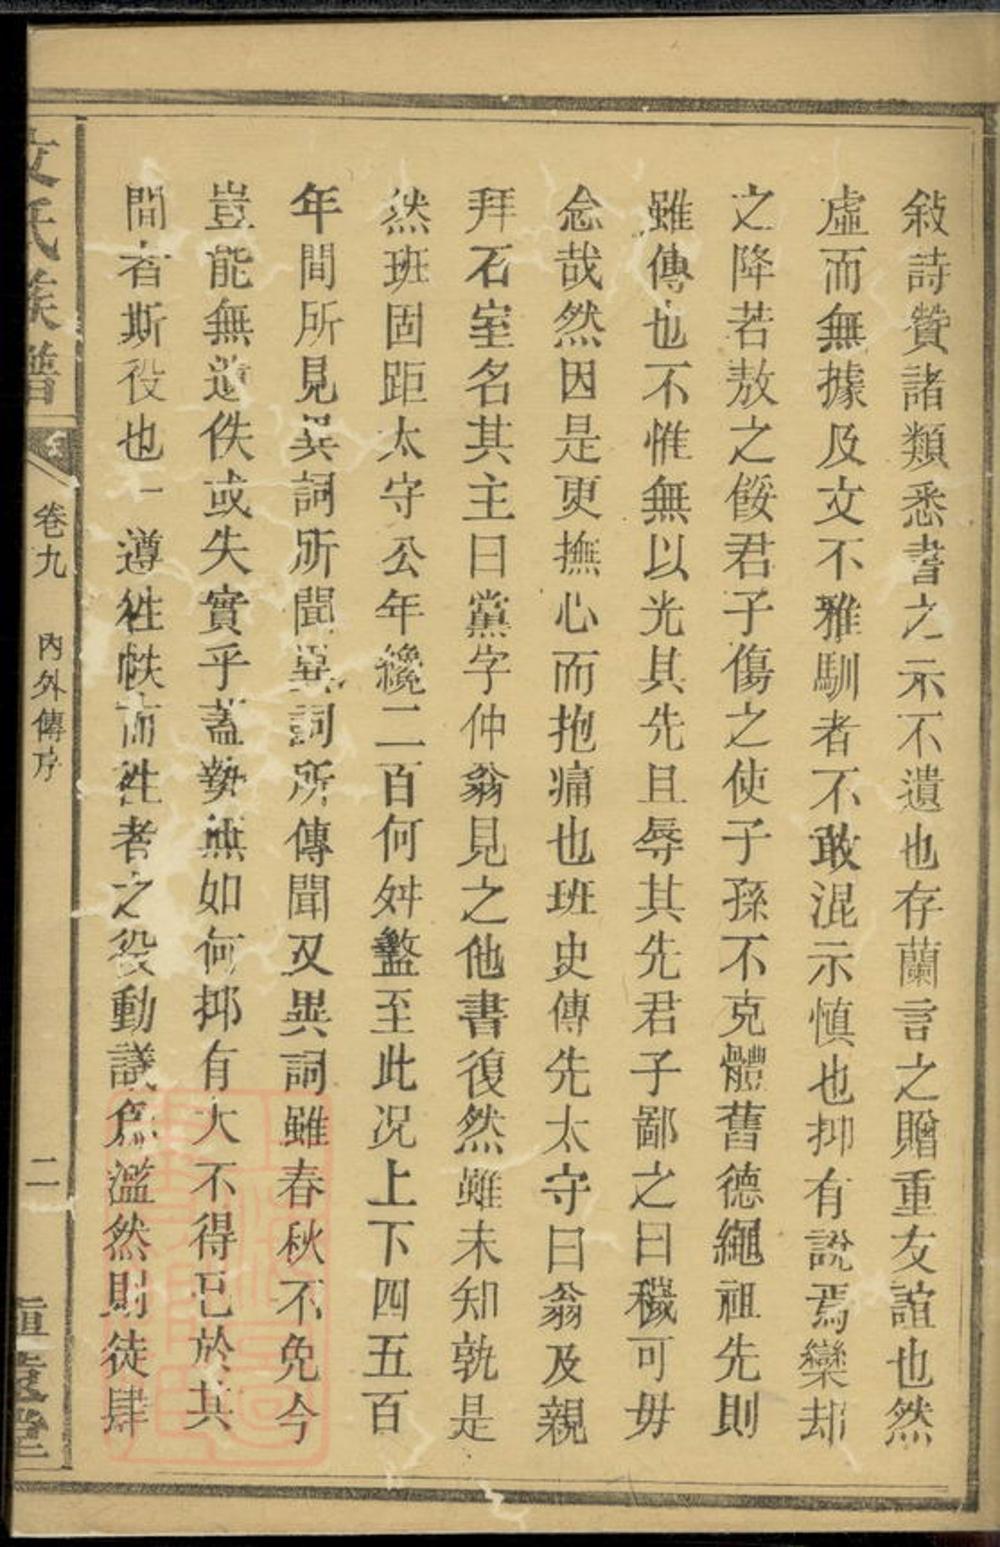 敍詩贊諸類悉書之示不遺也存蘭言之贈重友誼也然
虛而無據及文不雅馴者不敢混示慎也抑有說焉欒却
之降若敖之餒君子傷之使子孫不克體舊德繩祖先則
雖傳也不惟無以光其先且辱其先君子鄙之曰穢可毋
念哉然因是更撫心而抱痛也班史傳先太守曰翁及親
拜石室名其主曰黨字仲翁見之他書復然雖未知孰是
然班固距太守公年纔二百何舛盭至此况上下四五百
年間所見異詞所聞異詞所傳聞又異詞雖春秋不免今
豈能無遺佚或失實乎蓋勢無如何抑有大不得已於其
間者斯役也一遵往帙而往者之役動議煩濫然則徒肆
文氏族譜
卷九
內外傳序
二